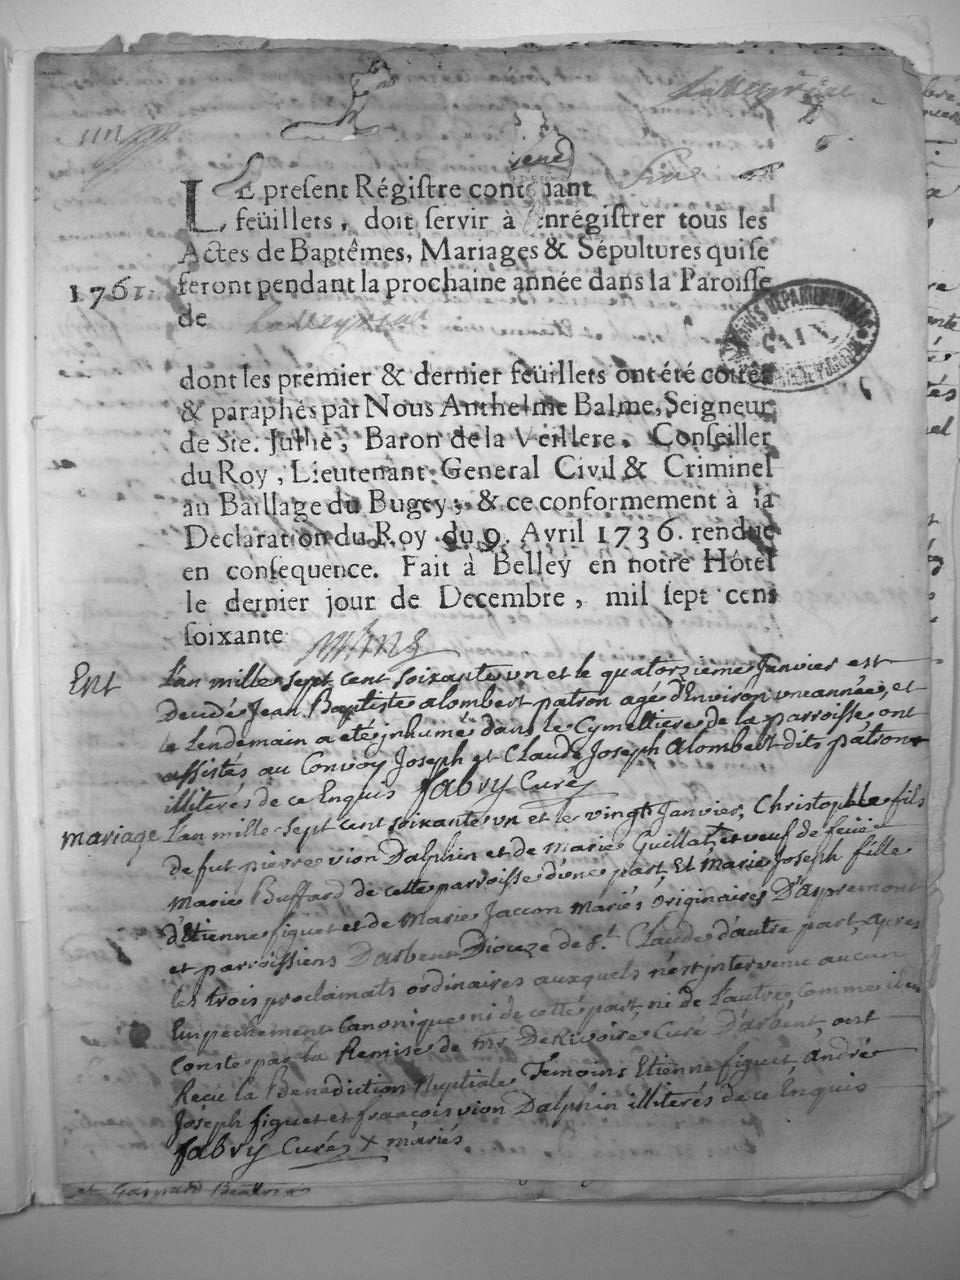 Laveyriat
LE present Régistre contenant
feüillets, doit servir à enrégistrer tous les
Actes de Baptêmes, Mariages & Sépultures qui se
1761. feront pendant la prochaine année dans la Paroisse
de
dont les premier & dernier feüillets ont été cottés
& paraphés par Nous Anthelme Balme, Seigneur
de Ste. Julhe, Baron de la Veillere, Conseiller
du Roy, Lieutenant General Civil & Criminel
au Baillage du Bugey, & ce conformement à la
Declaration du Roy du 9. Avril 1736. rendue
en consequence. Fait à Belley en notre Hôtel
le dernier jour de Decembre, mil sept cent
soixante
ARCHIVES DEPARTEMENTALES
AIN
Ent L'an mille sept cent soixante un et le quatorzieme Janvier est
Decedé Jean Baptiste alombert patron agé d'Environ une année, et
le Lendemain a été jnhumé dans le Cymettiere de la parroisse ont
assistés au Convoy Joseph et Claude Joseph Alombert dits patron
illiterés de ce Enquis fabry Curé
mariage L'an mille sept cent soixante un et le vingt Janvier, Christophle fils
de fut pierre vion Dalphin et de marie Guillat, et veuf de feüe
Marie Buffard de cette parroisse d'une part, Et Marie Joseph fille
d'Etienne figuet et de Marie Jacom mariés originaires D'aspremont
et parroissiens D'arbent Dioceze de St. Claude d'autre part, apres
les trois proclamats ordinaires auxquels n'est jntervenu aucun
Empechement Canonique ni de cette part, ni de L'autre, Comme il en
Conste par la Remise de mr De Rivoire Curé D'arbent, ont
Recu la Benediction Nuptiale Temoins Etienne figuet, andré
Joseph figuet et francois vion Dalphin illiterés de ce Enquis
fabry Curé x mariés
et Gaspard